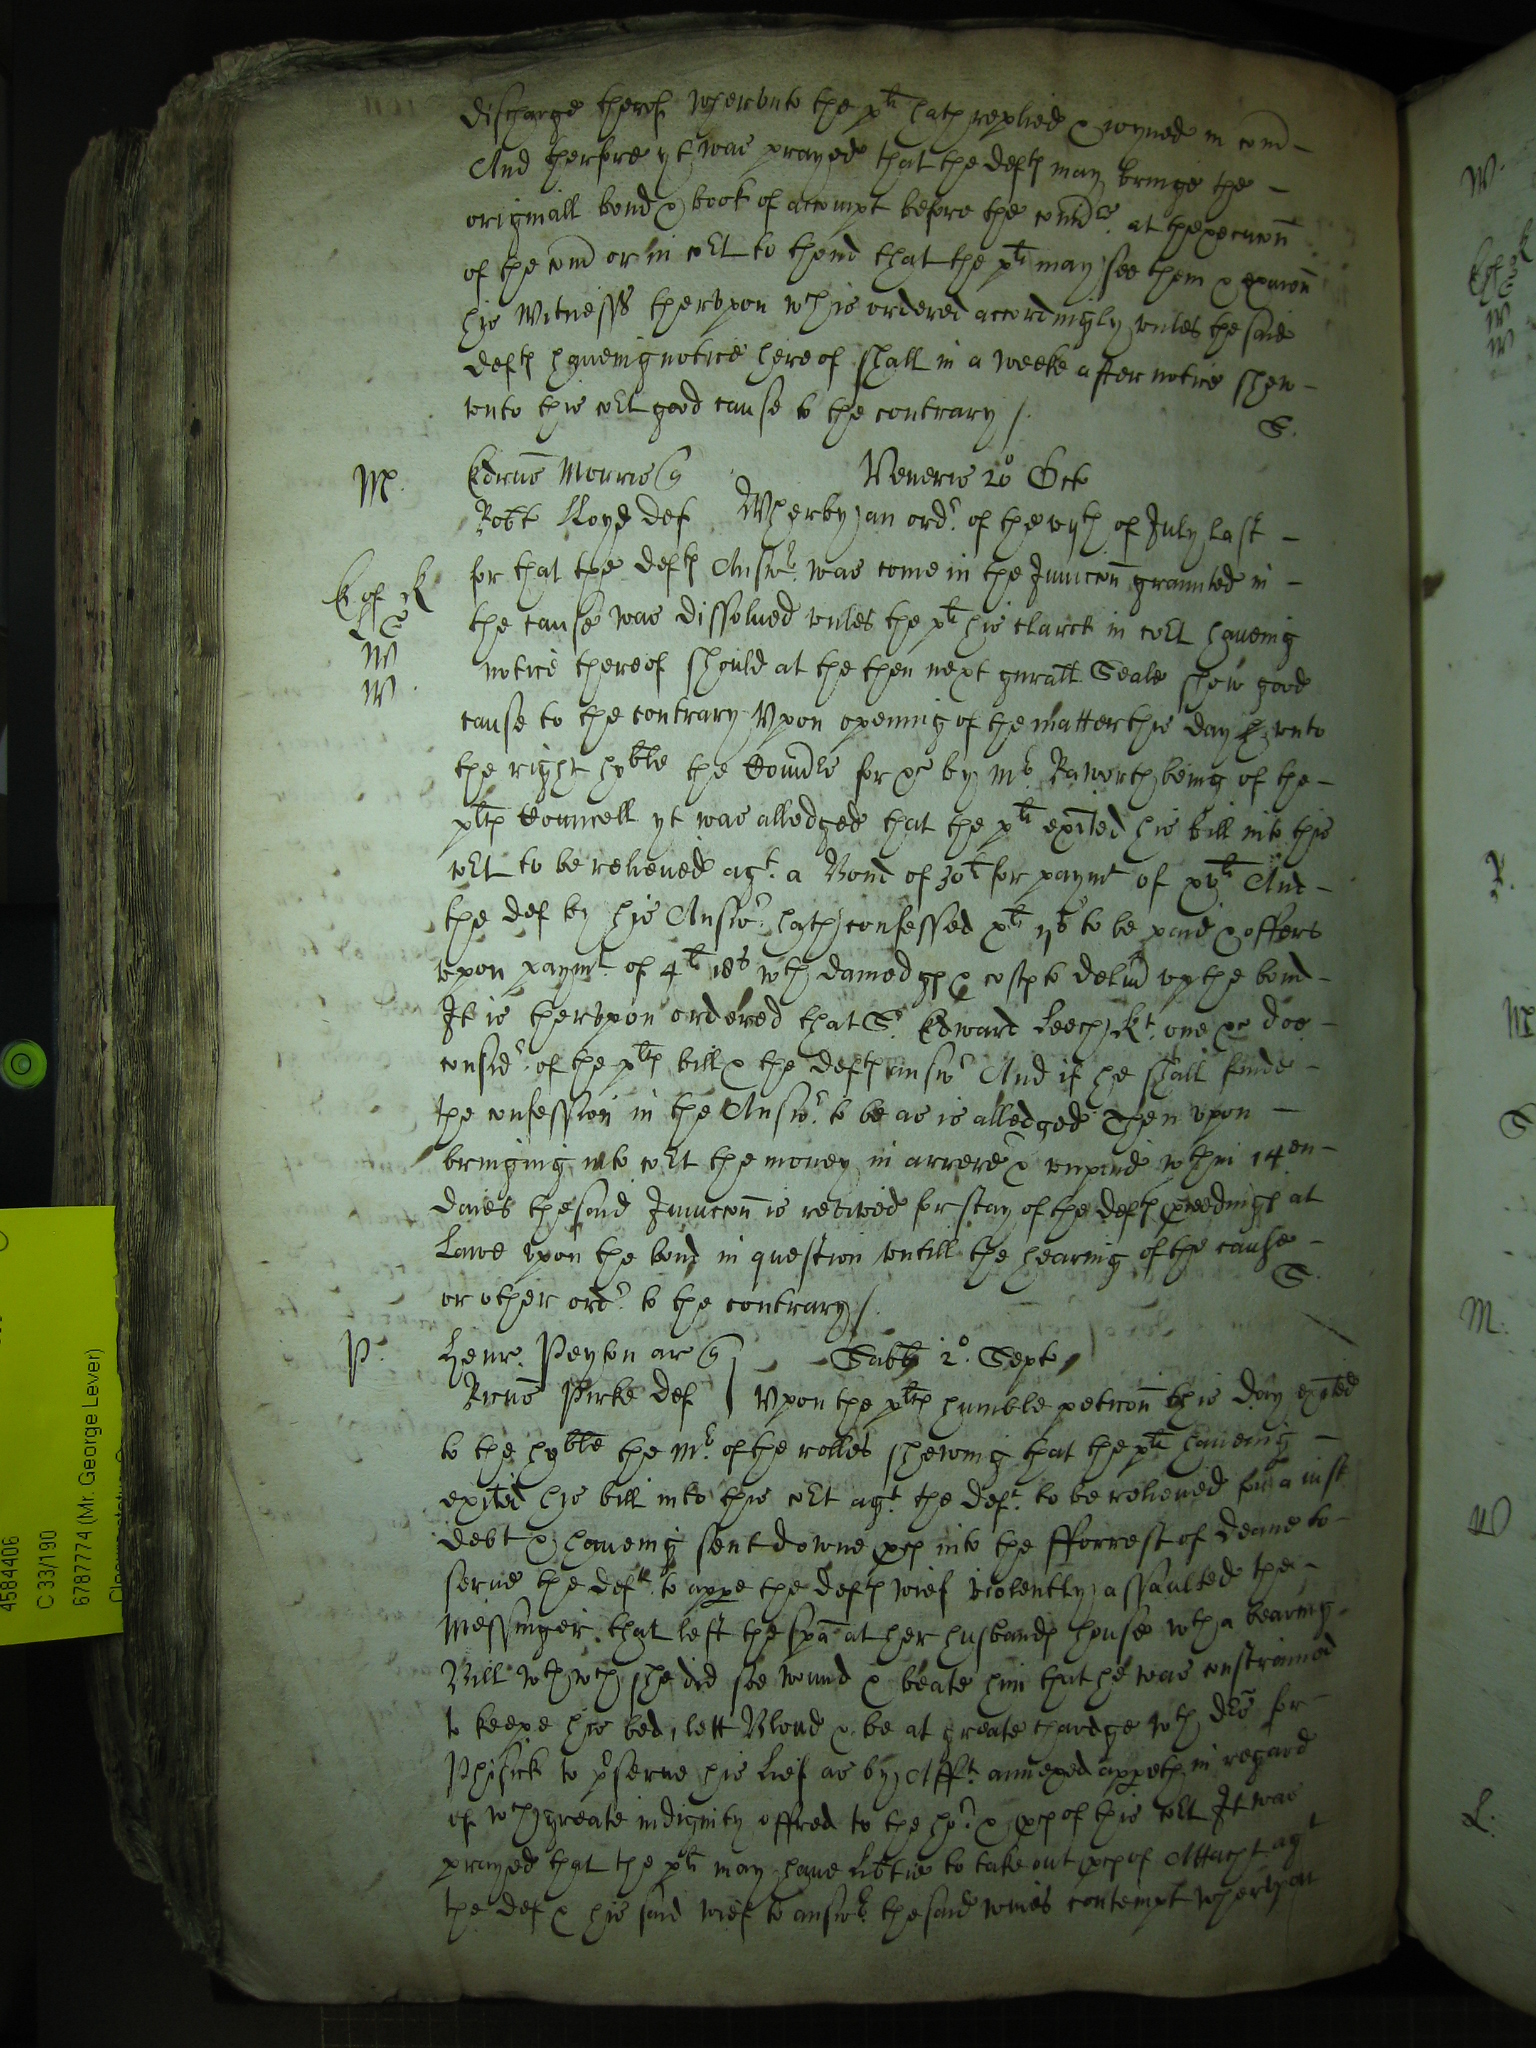 discharge therof wherunto the plt hath replied & ioyned in com̄
And therfore yt was prayed that the deft may bringe the
originall bond & book of accompt before the com̄rs at thexecucōn
of the com̄ or in cōrt to thend that the plt may see them & examn
his Witness therupon wch is ordered accordingly unles the said
deft haueing notice hereof shall in a weeke after notice shew
unto this cōrt good cause to the contrary /.
S.
M.
Edrus Morris q
Veneris 20 Octo
Robt Lloyd def
Wherby an ordr. of the vjth of July last
for that the deft Answr. was come in the Iniuccōn graunted in
the cause was dissolued unles the plt his clarck in cōrt haueing
notice thereof should at the then next gnrall Seale shew good
cause to the contrary Vpon opening of the matter this day unto
the right hoble the Com̄rs for &c by Mr. Raworth being of the
plts Councell yt was alledged that the plt exited his bill into this
cōrt to be releiued agt. a Bond of 30l for paymt of xvl And
the def by his Answr. hath confessed xl ijs to be paid & offers
upon paymt. of 4l 18s wth damedges & costs to deliu up the bond
It is therupon ordered that Sr. Edward Leech Kt. one &c doe
considr. of the plts bill & the defts answr And if he shall finde
the confession in the Answr. to be as is alledged Then upon
bringing into cōrt the money in arrere & unpaid wthin 14en
daies the said Iniuccōn is reviued for stay of the defts pceedings at
Lawe upon the bond in question untill the hearing of the cause
or other ordr. to the contrary /.
S.
P.
Henr. Peyton ar q
Sabti 2o. Sept
Ricus Pirke def
Vpon the plts humble peticōn this day exited
to the hoble the Mr. of the rolles shewing that the plt haueing
exited his bill into this cōrt agt. the deft. to be releiued for a iust
debt & haueing sent downe pces into the fforrest of Deane to
serue the deft. to appe the defts wief violently assaulted the
Messinger that left the spa at her husbands house wth a bearing
Bill wth wch she did soe wound & beate him that he was constrained
to keepe his bed, lett Bloud & be at greate chardge wth drs for
Phisick to pserue his lief as by Afft. annexed appeth in regard
of wch greate indignity offred to the hor. & pces of this cōrt It was
prayed that the plt may haue libtie to take out pces of Attacht agt
the def & his said wief to answr. the said wiues contempt wherupon
4584406
C 33/190
6787774 (Mr. George Lever)